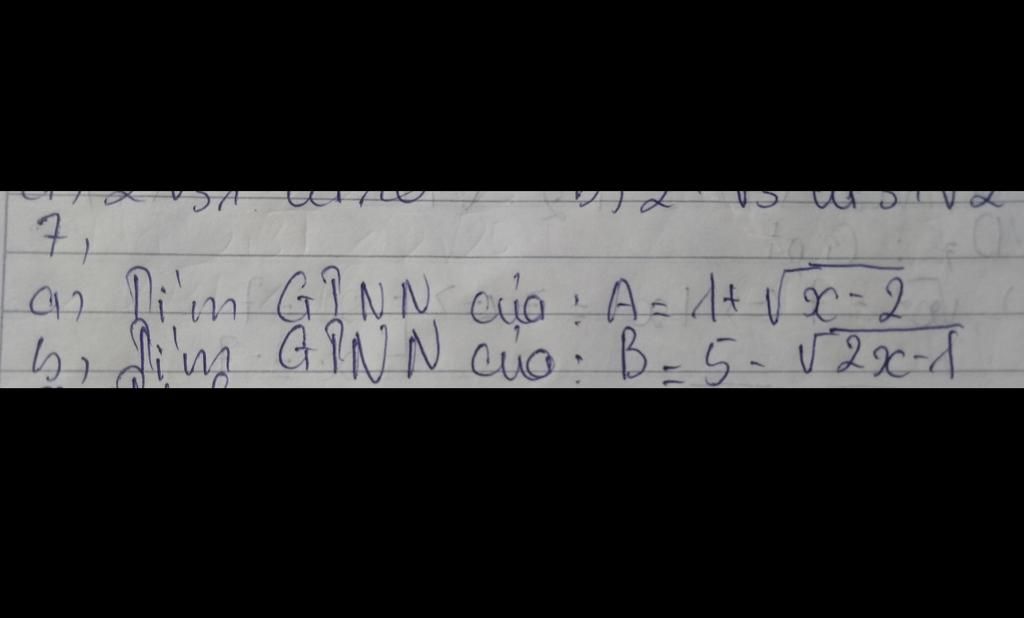 7,
a, Tìm GTNN của: A = 1 + √x-2
b, Tìm GTNN của: B = 5 - √2x-1